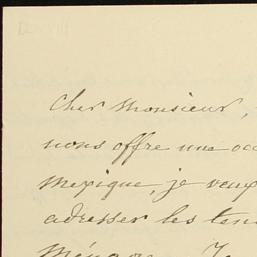 Cher Monsieur,
nous offre une occ
mexique, je veux
adresser les ten
ménage. Je